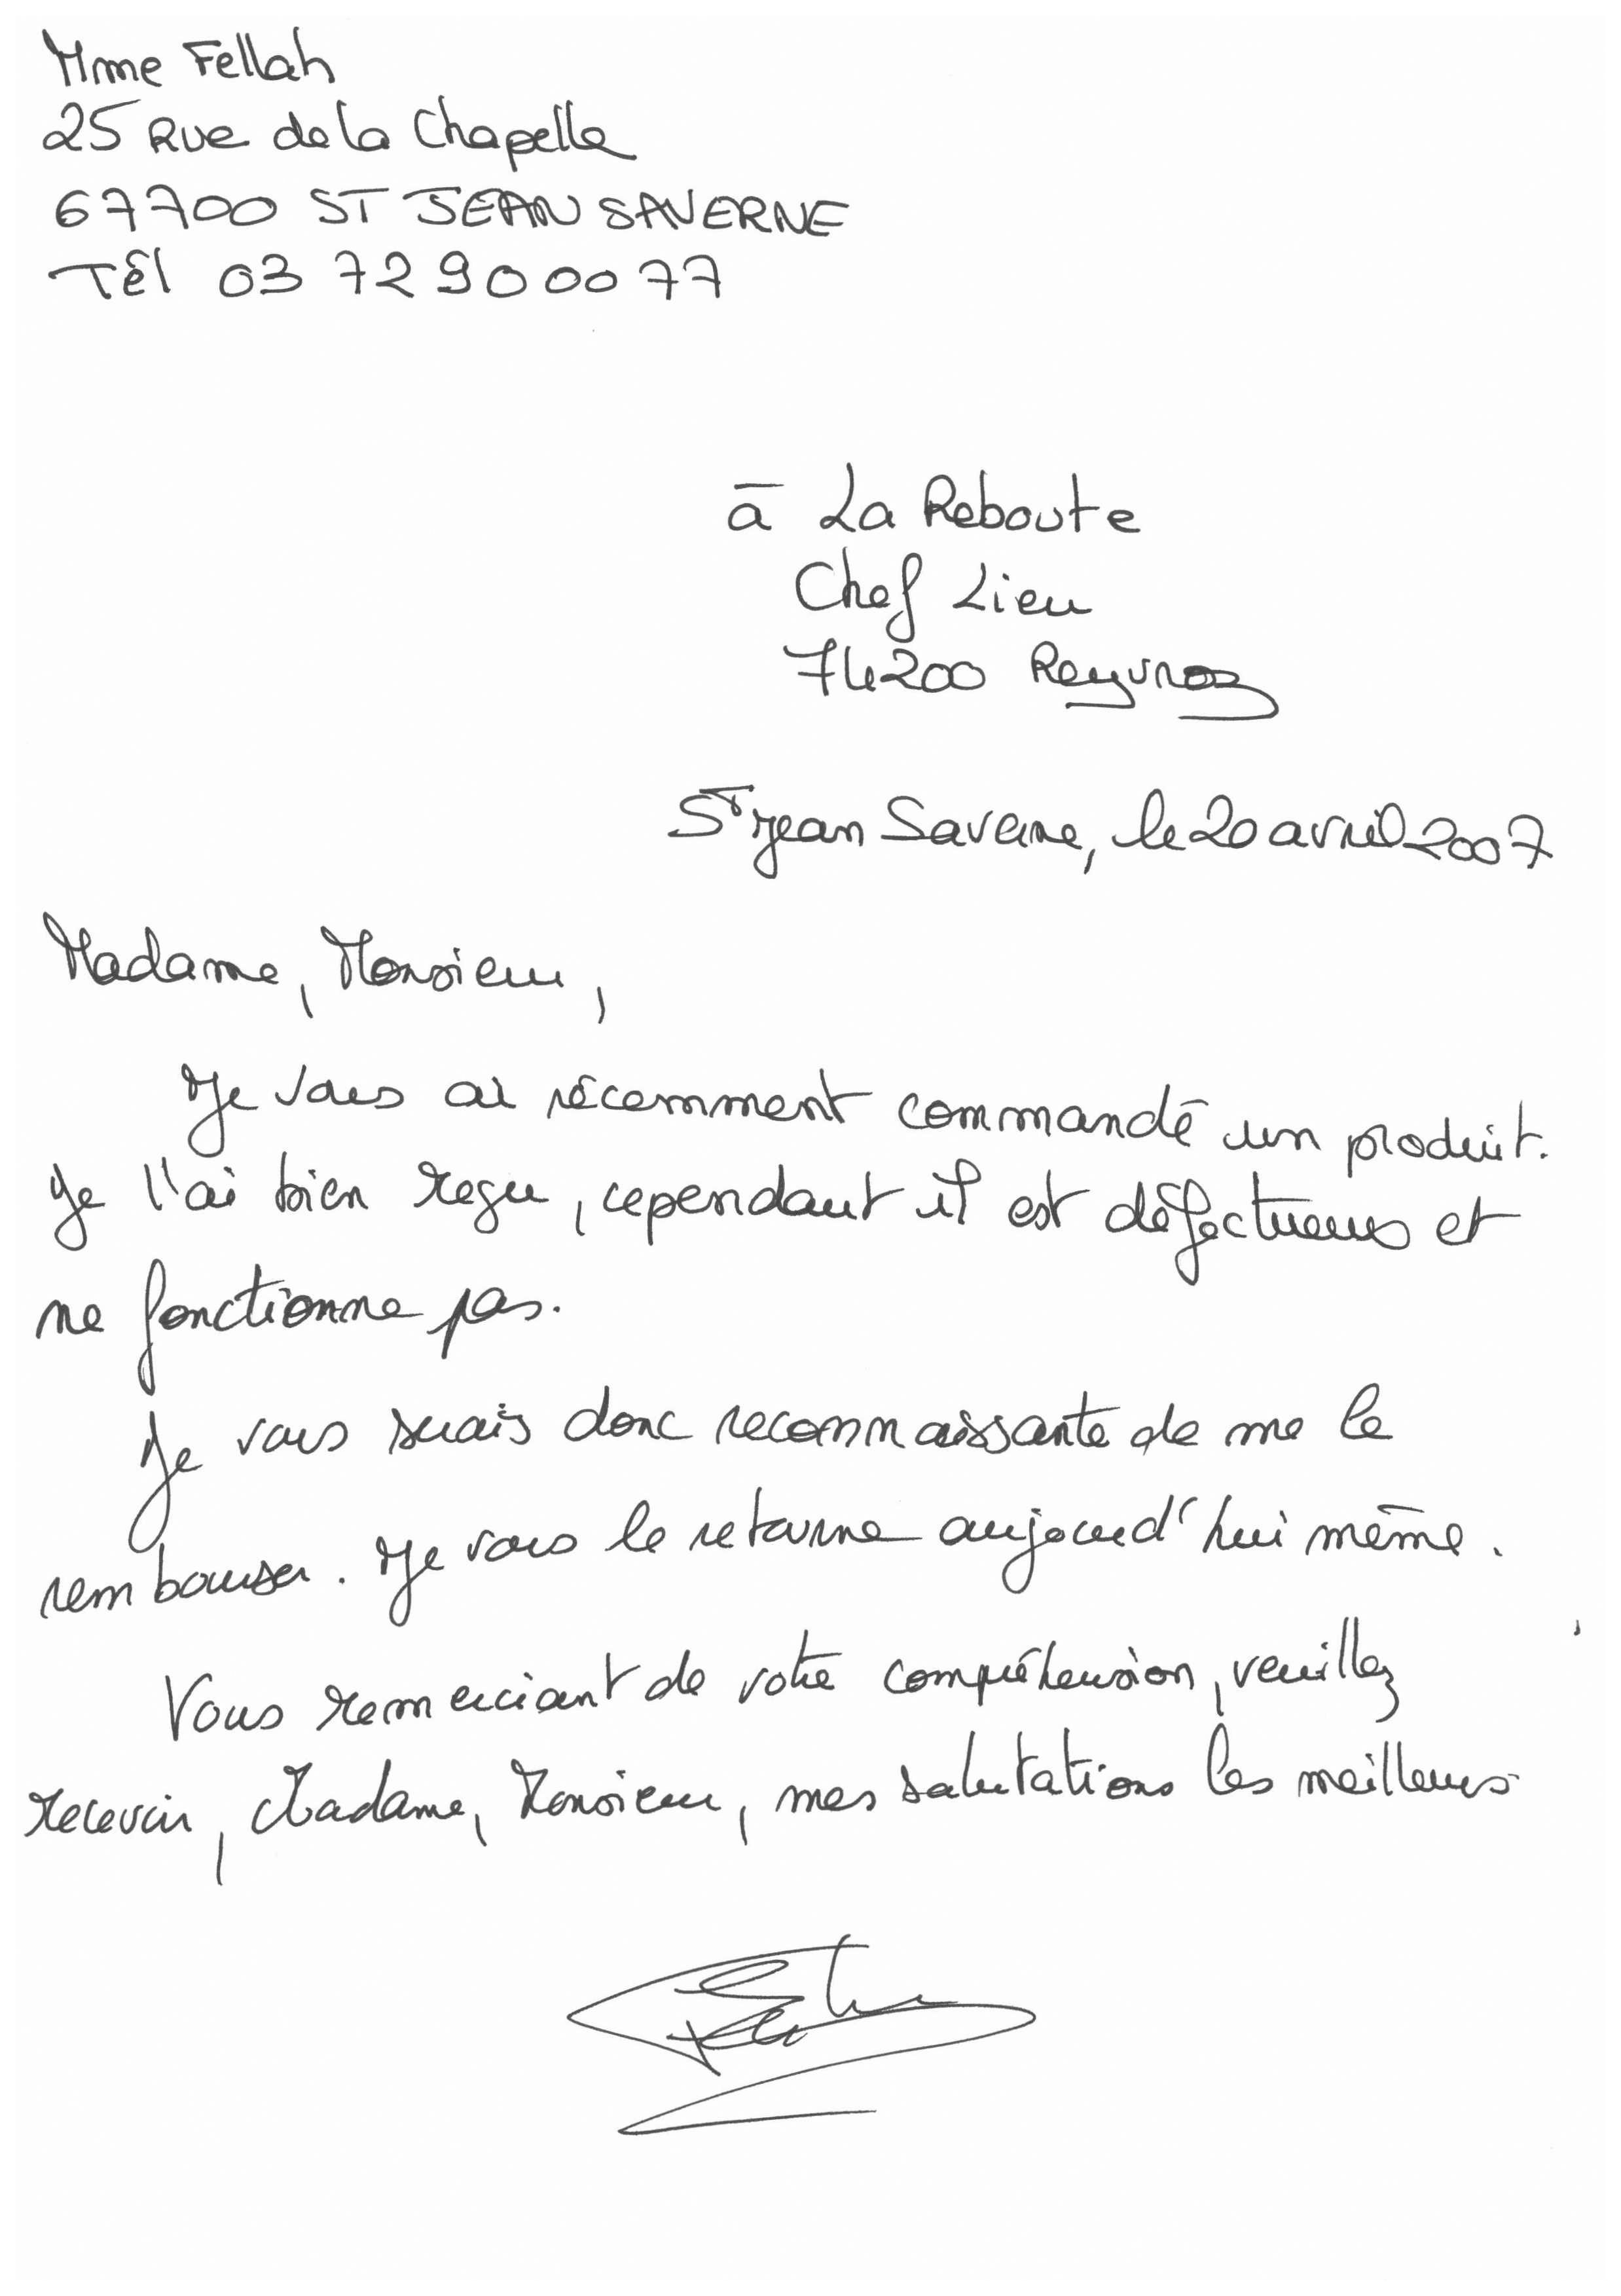 Mme Fellah
25 Rue de la Chapelle
67700 ST JEAN SAVERNE
Tél 03 72 90 00 77
à La Reboute
Chef Lieu
74200 Reyvroz
St Jean Saverne, le 20 avril 2007
Madame, Monsieur,
Je vous ai récemment commandé un produit.
Je l'ai bien reçu, cependant il est défectueux et
ne fonctionne pas.
Je vous serais donc reconnaissante de me le
rembourser. Je vous le retourne aujourd'hui même.
Vous remerciant de votre compréhension, veuillez
recevoir, Madame, Monsieur, mes salutations les meilleurs